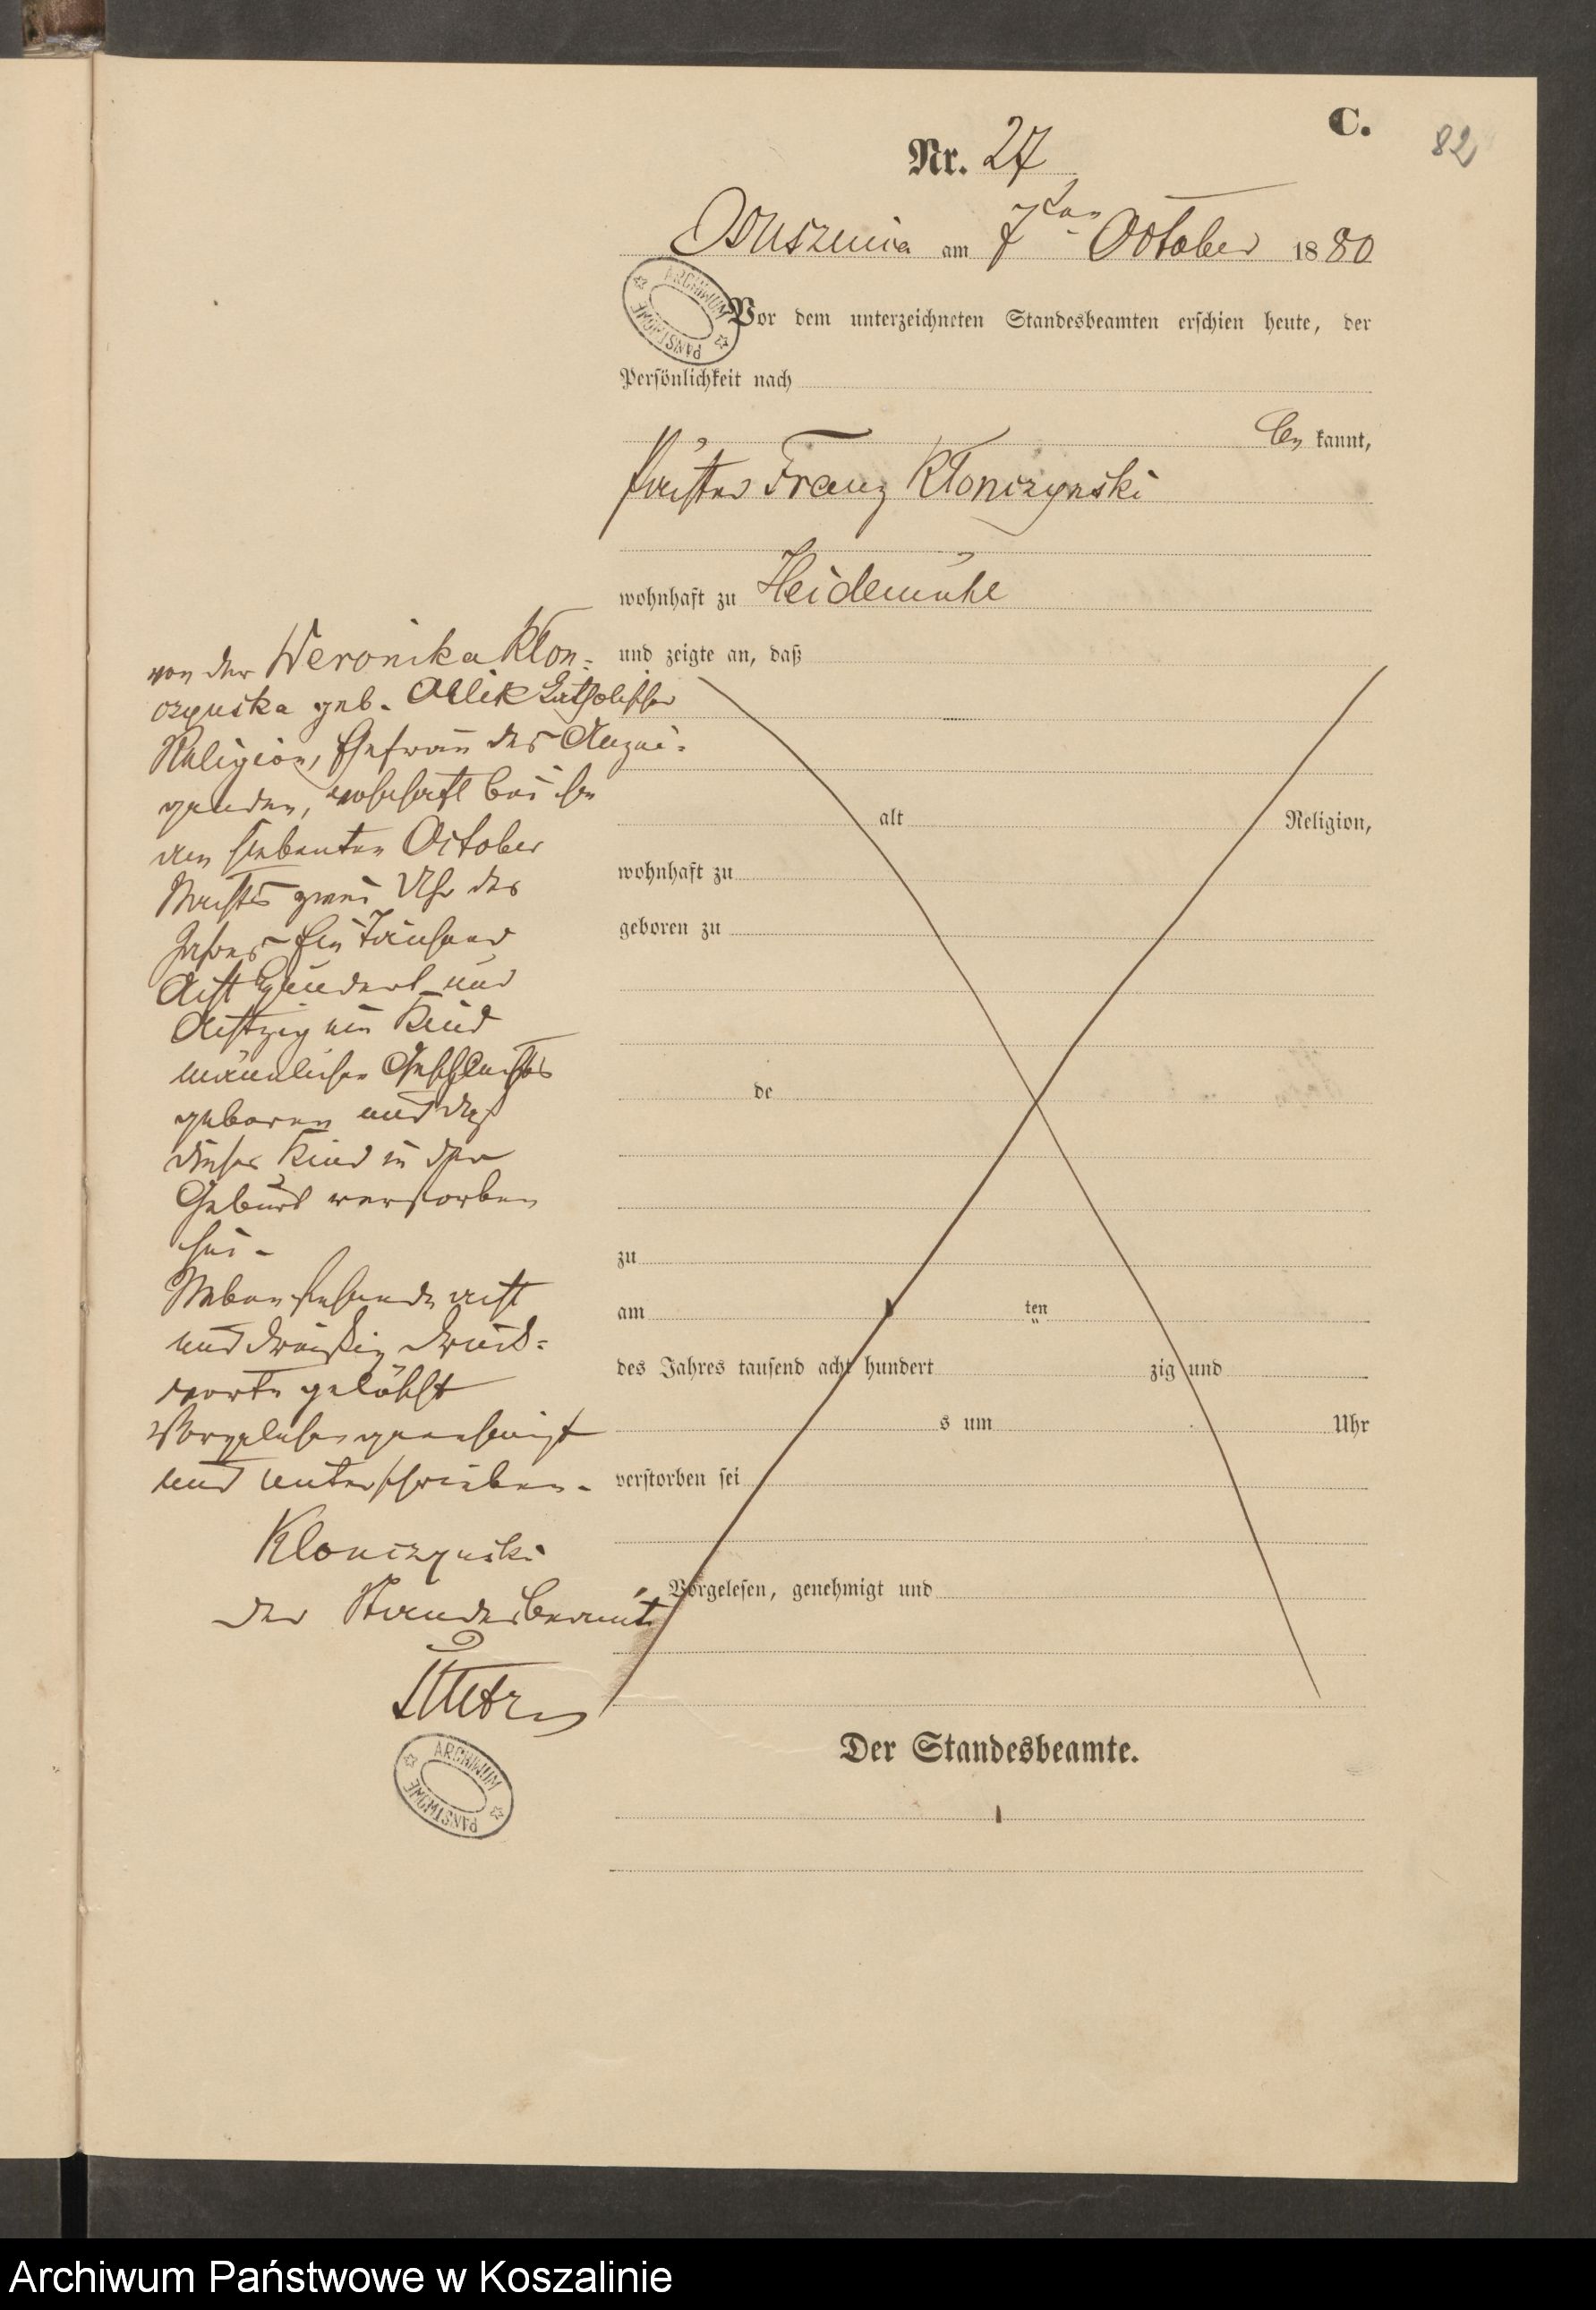 C.
82
Nr. 27
Ossuszenica am 7ten October 1880
ARCHIWUM PAŃSTWOWE
Vor dem unterzeichneten Standesbeamten erschien heute, der
Persönlichkeit nach
be kannt,
Förster Franz Klonczynski
wohnhaft zu Heidemühle
und zeigte an, daß
von der Weronika Klon-
czynska geb. Ollik katholischer
Religion, Ehefrau des Anzei-
genden, wohnhaft bei ihm
am siebenten October
Nachts zwei Uhr des
Jahres Ein Tausend
Acht Hundert und
Achtzig ein Kind
männlichen Geschlechts
geboren und daß
dieses Kind in der
Geburt verstorben
sei -
Nebenstehende acht
und dreißig Druck-
worte gelöscht
Vorgelesen genehmigt
und unterschrieben -
Klonczynski
Der Standesbeamte
ARCHIWUM PAŃSTWOWE
alt Religion,
wohnhaft zu
geboren zu
de
zu
am ten
des Jahres tausend acht hundert zig und
s um Uhr
verstorben sei
Vorgelesen, genehmigt und
Der Standesbeamte.
Archiwum Państwowe w Koszalinie